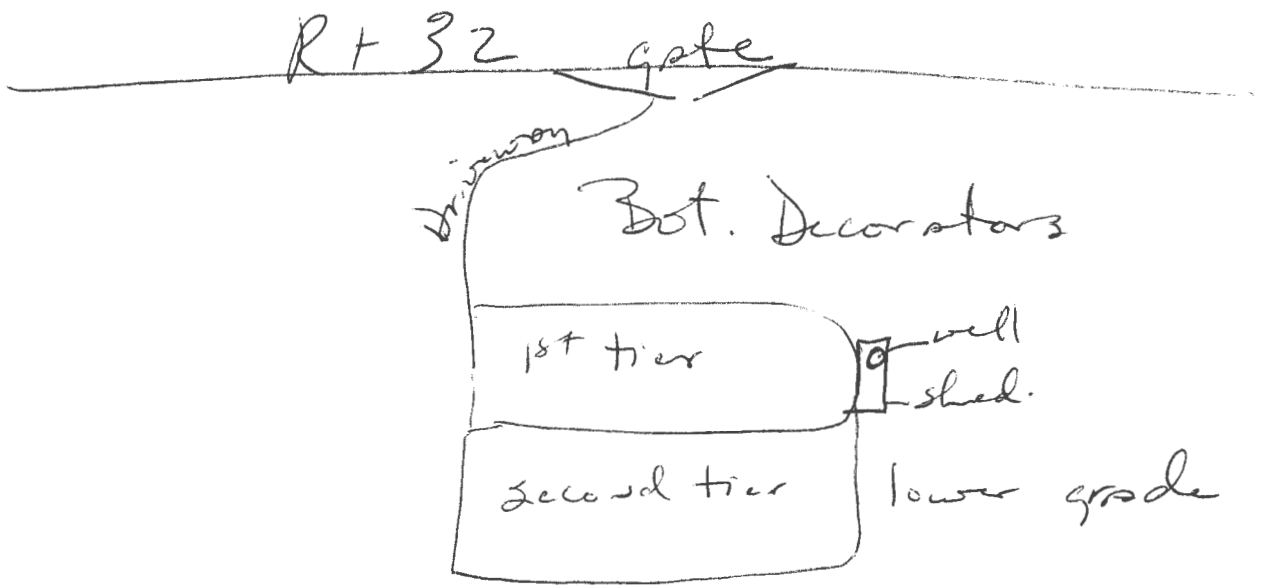 Rt 32 gate
Driveway
Bot. Decorators
1st tier
well
shed.
second tier
lower grade